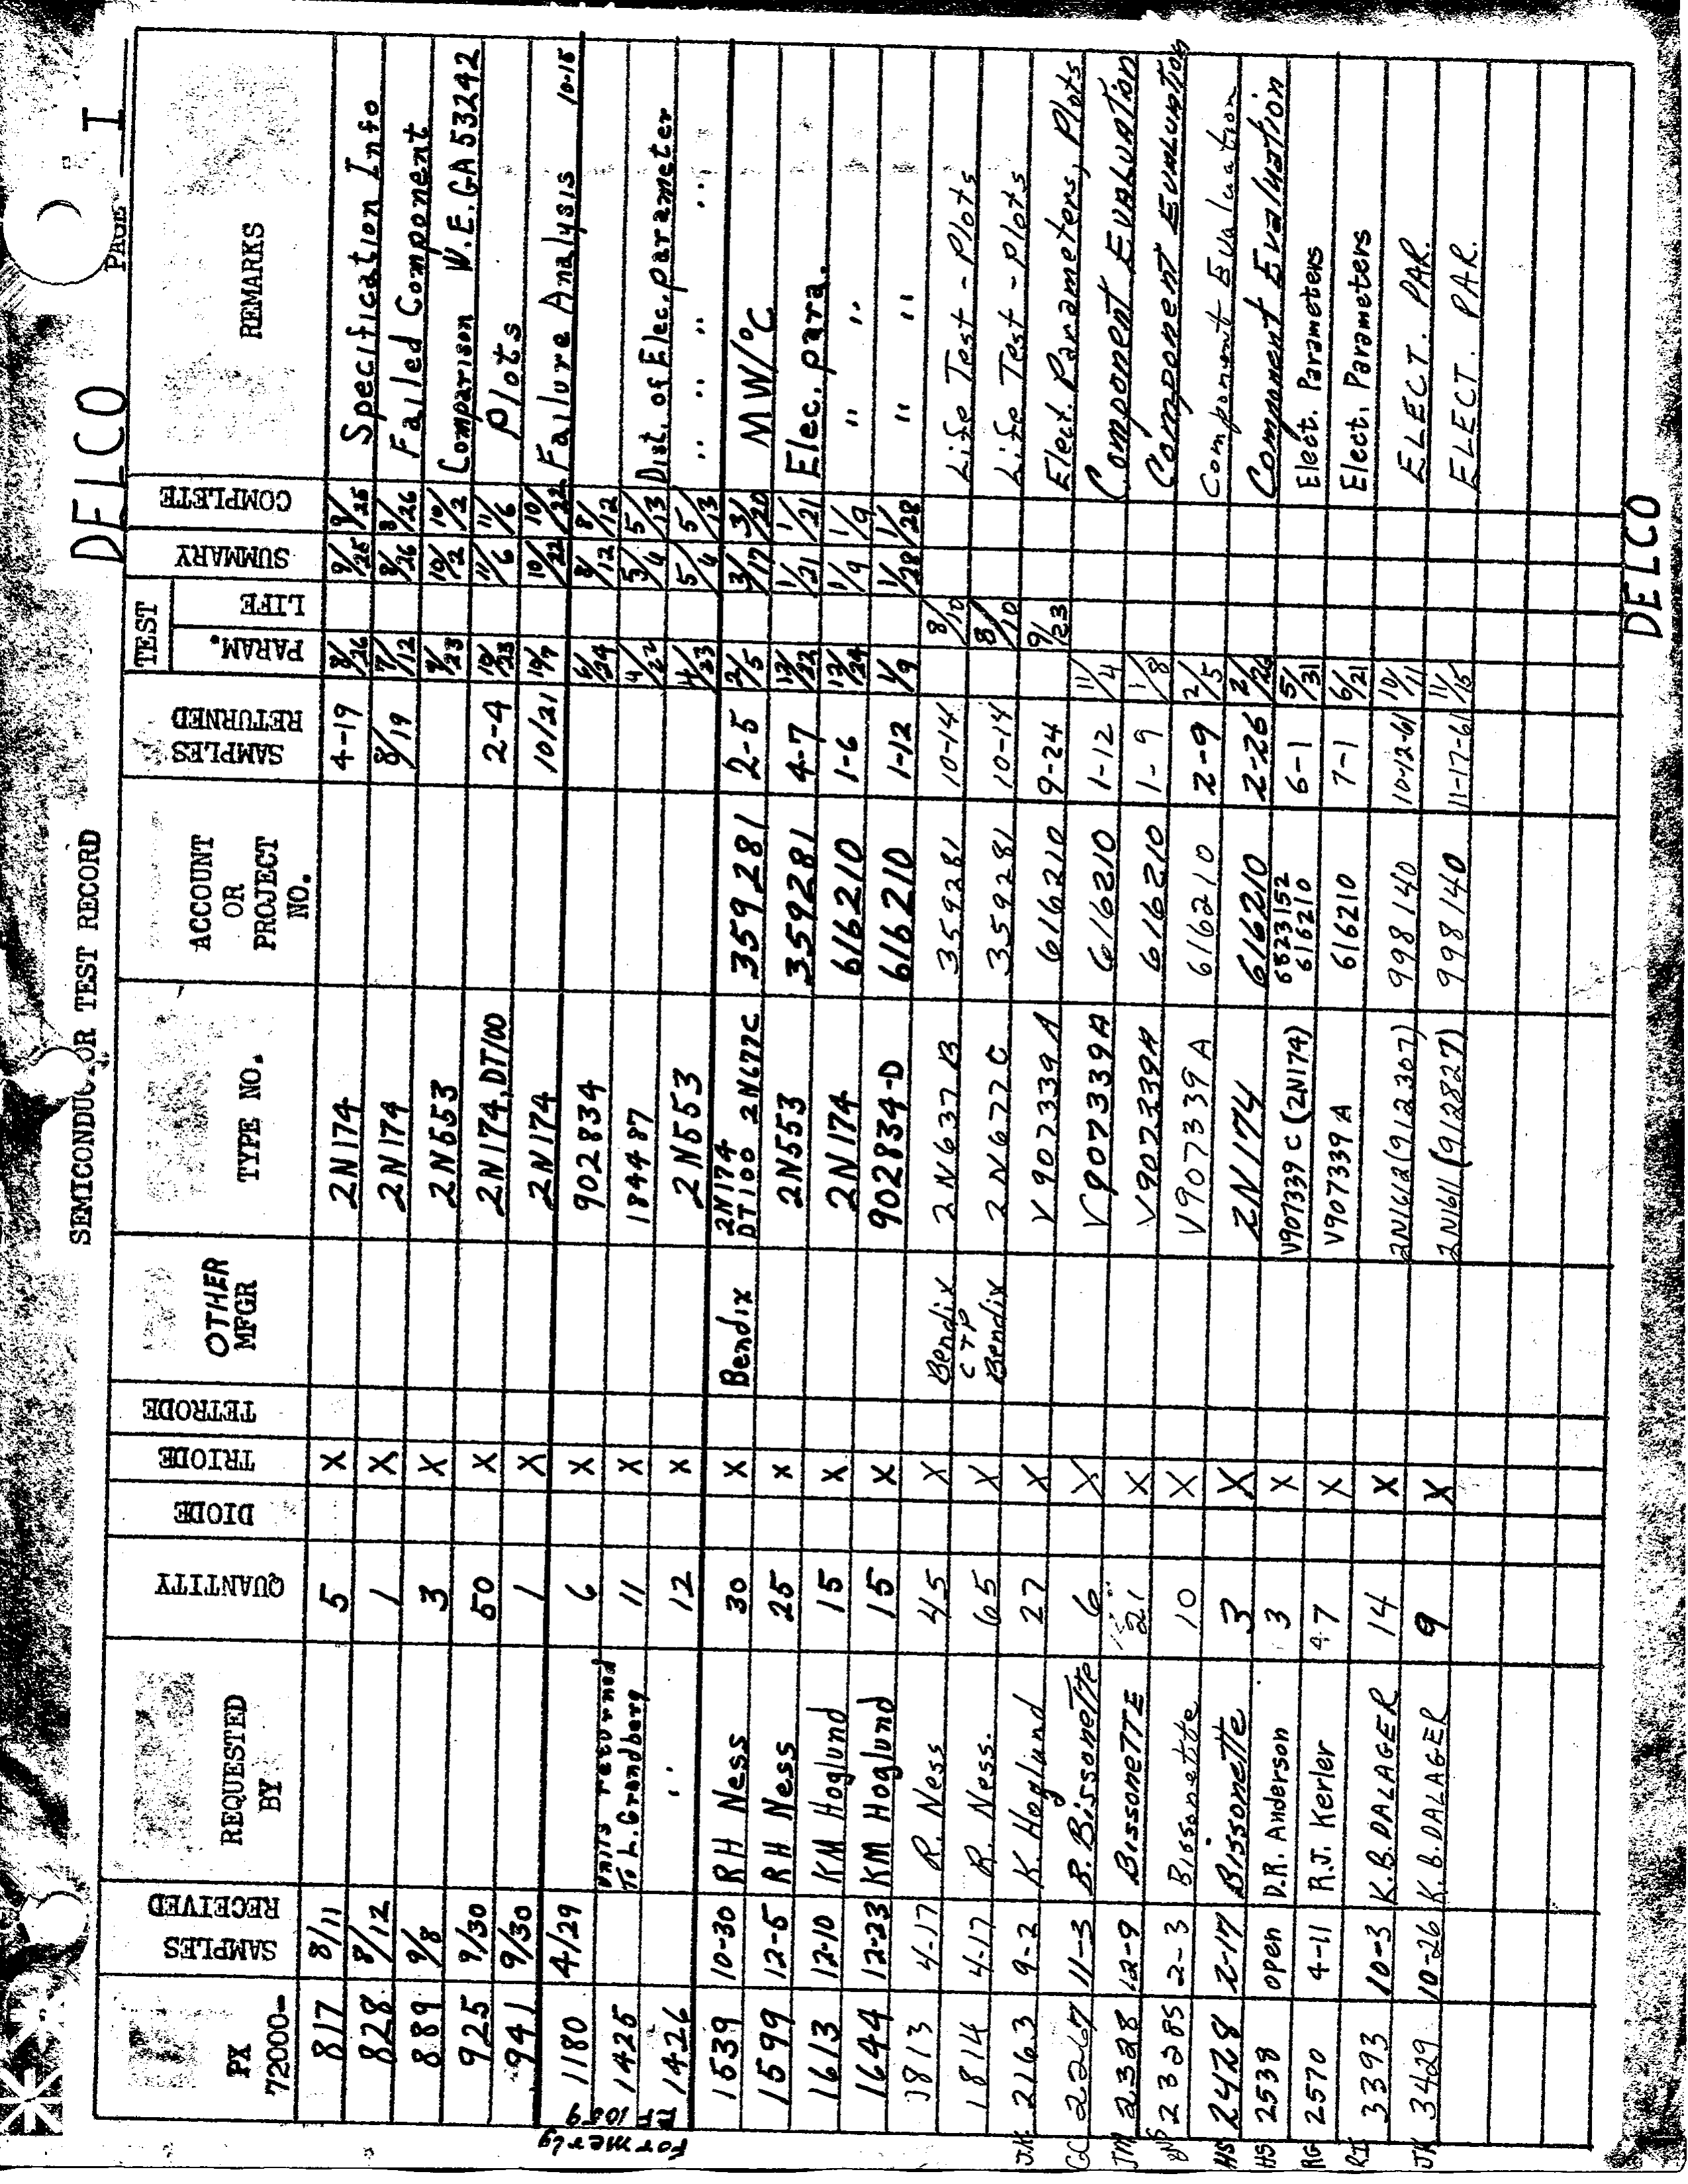 DELCO
PAGE I
SEMICONDUCTOR TEST RECORD
PX 72000- | SAMPLES RECEIVED | REQUESTED BY | QUANTITY | DIODE | TRIODE | TETRODE | OTHER MFGR | TYPE NO. | ACCOUNT OR PROJECT NO. | SAMPLES RETURNED | TEST PARAM. | TEST LIFE | SUMMARY | COMPLETE | REMARKS
817 8/11 5 X 2N174 4-19 8/26 9/25 9/25 Specification Info
828 8/12 1 X 2N174 8/19 7/12 8/26 8/26 Failed Component
889 9/8 3 X 2N553 9/23 10/2 10/2 Comparison W.E.GA53242
925 9/30 50 X 2N174,DT100 2-4 10/23 11/6 11/6 Plots
941 9/30 1 X 2N174 10/21 10/7 10/22 10/22 Failure Analysis 10-15
Formerly EF 1059
1180 4/29 6 X 902834 6/24 8/12 8/12
1425 Units returned To L.Grandberg 11 X 184487 4/22 5/4 5/13 Dist. of Elec. parameter
1426 " 12 X 2N553 4/23 5/4 5/13 " " " "
1539 10-30 RH Ness 30 X Bendix 2N174 DT100 2N677C 359281 2-5 2/5 3/17 3/20 MW/°C
1599 12-5 RH Ness 25 X 2N553 359281 4-7 12/22 1/21 1/21 Elec. para.
1613 12-10 KM Hoglund 15 X 2N174 616210 1-6 12/24 1/9 1/9 " "
1644 12-23 KM Hoglund 15 X 902834-D 616210 1-12 1/9 1/28 1/28 " "
1813 4-17 R. Ness 45 X Bendix 2N637B 359281 10-14 8/10 Life Test - Plots
1814 4-17 R. Ness. 65 X CTP Bendix 2N677C 359281 10-14 8/10 Life Test - Plots
J.H. 2163 9-2 K. Hoglund 27 X V907339A 616210 9-24 9/23 Elect. Parameters, Plots
GC 2267 11-3 B. Bissonette 6 X V907339A 616210 1-12 11/4 Component Evaluation
JM 2328 12-9 Bissonette 21 X V907339A 616210 1-9 1/8 Component Evaluation
2385 2-3 Bissonette 10 X V907339A 616210 2-9 2/5 Component Evaluation
HS 2428 2-17 Bissonette 3 X 2N174 616210 2-26 2/26 Component Evaluation
HS 2538 open D.R. Anderson 3 X V907339C (2N174) 6523152 616210 6-1 5/31 Elect. Parameters
RG 2570 4-11 R.J. Kerler 7 X V907339A 616210 7-1 6/21 Elect. Parameters
RI 3393 10-3 K.B. DALAGER 14 X 2N1612(912307) 998140 10-12-61 10/11 ELECT. PAR.
JK 3429 10-26 K.B. DALAGER 9 X 2N1611(912827) 998140 11-17-61 11/15 ELECT. PAR.
DELCO